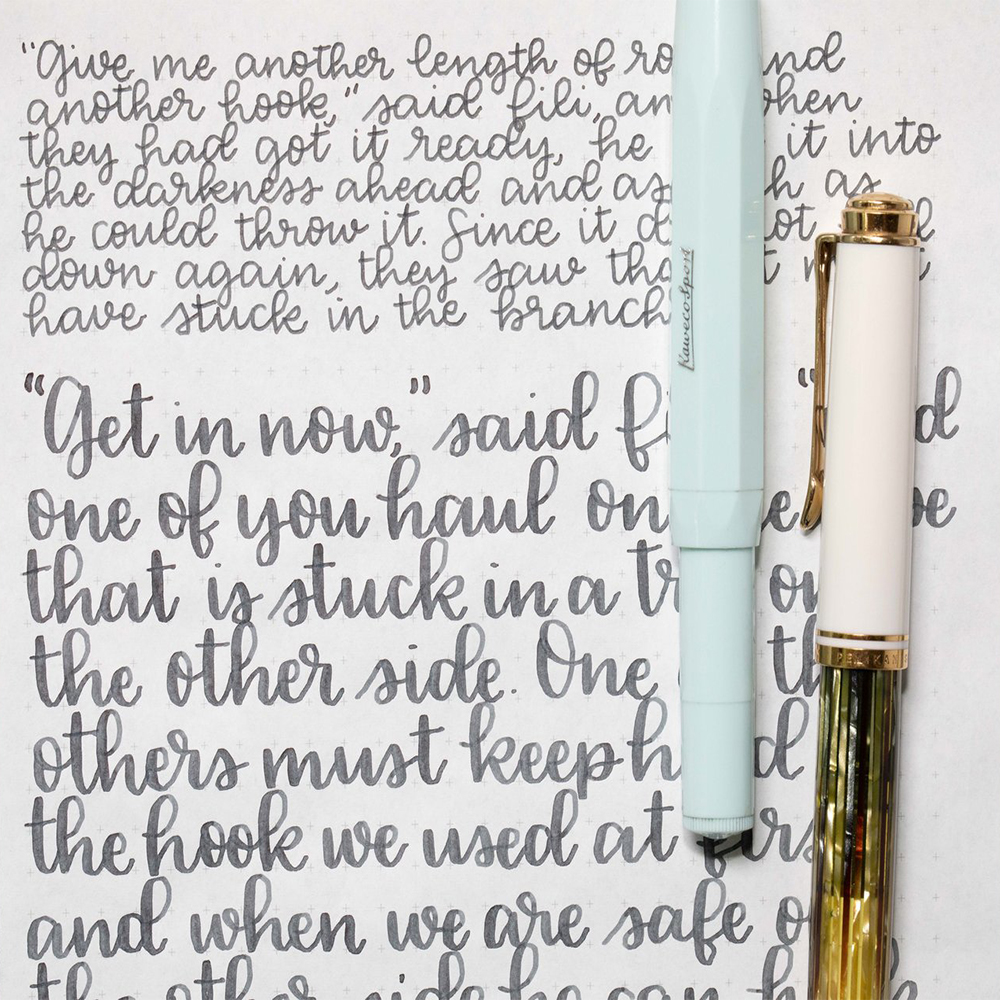 "Give me another length of
another hook," said fili,
they had got it ready, he it into
the darkness ahead and as as
he could throw it. Since it
down again, they saw
have stuck in the
"Get in now," said
one of you haul on
that is stuck in a
the other side. One
others must keep
the hook we used at
and when we are safe
the other side he can
Kaweco Sport
PELIKAN